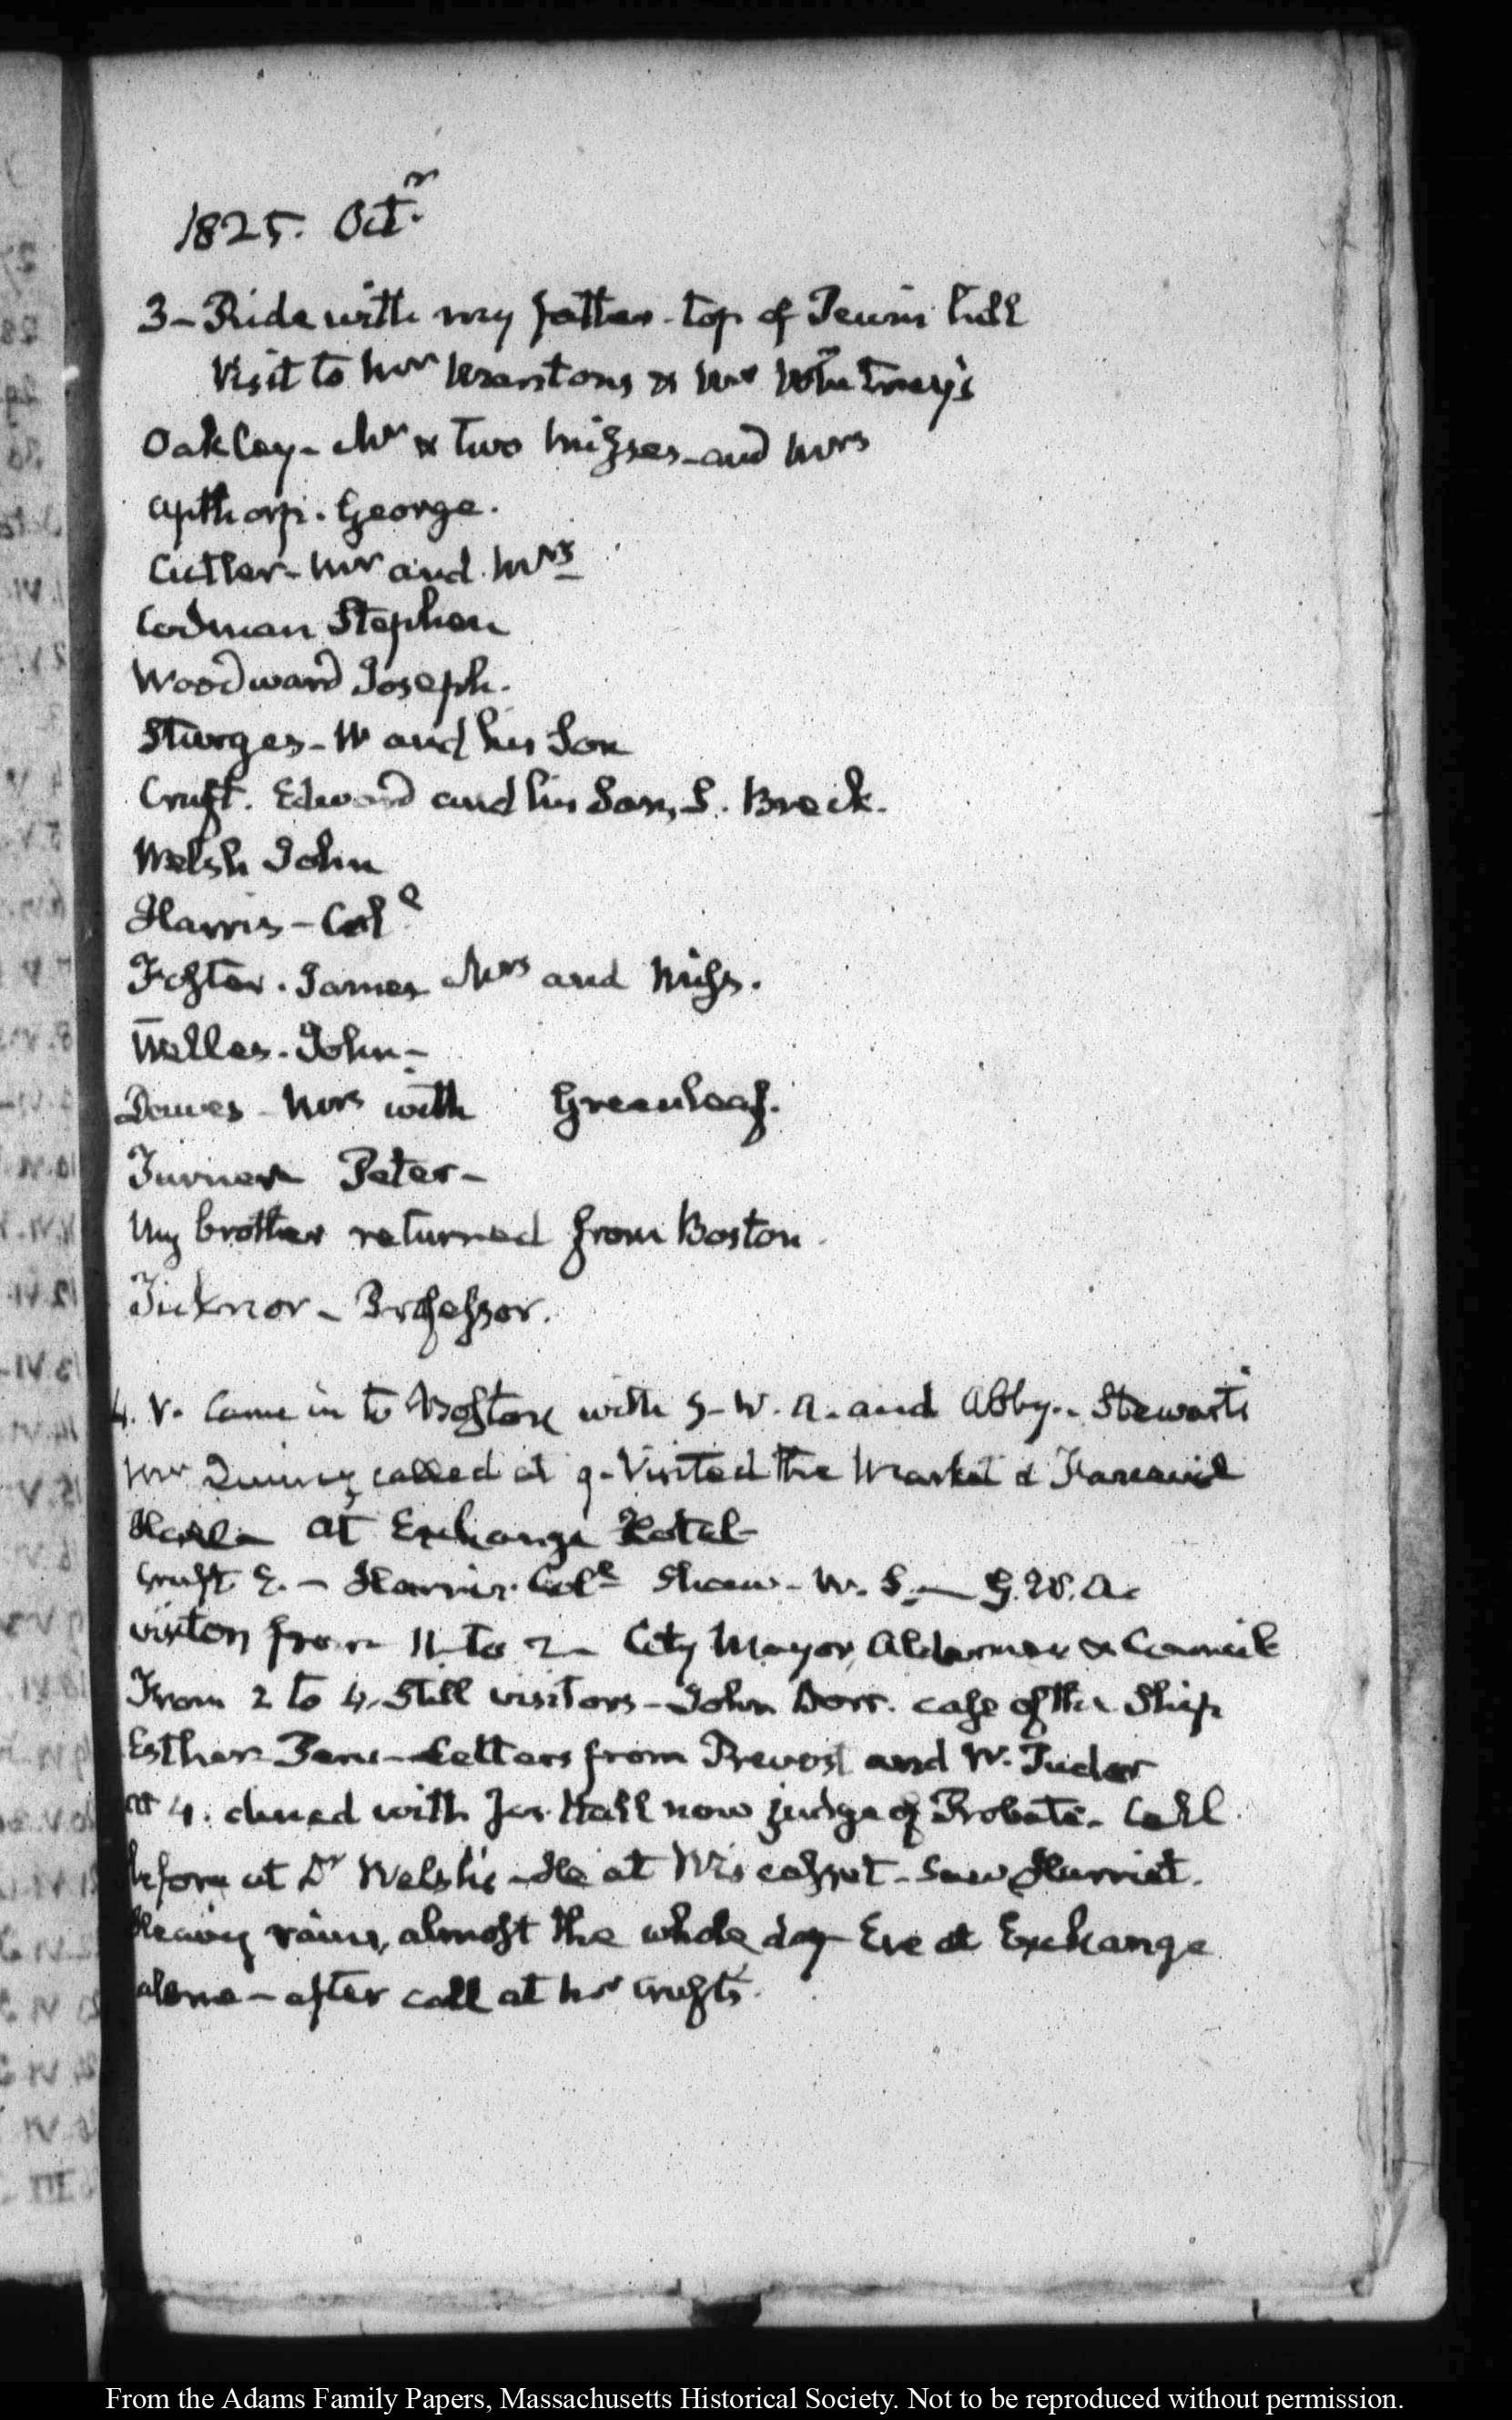 1825. Octr.
3 – Ride with my father – top of Penn's hill
Visit to Mr Marston's & Mr Whitney's
Oakley – Mr & two Misses – and Mrs
Apthorp. George.
Cutler – Mr and Mrs
Codman Stephen
Woodward Joseph.
Sturges – W and his Son
Cruft. Edward and his Son, S. Breck.
Welsh John
Harris – Coll.
Foster. James Mrs and Miss.
Welles. John –
Dawes – Mrs with Greenleaf.
Turner Peter –
My brother returned from Boston.
Ticknor – Professor.
4. V. Came in to Boston with G. W. A. and Abby. Stewart's
Mr Quincy called at 9 – Visited the Market & Faneuil
Hall – at Exchange Hotel –
Cruft E. – Harris Coll. Shaw – W. S. – G. W. A.
visitors from 11 to 2 – City Mayor, Aldermen & Council
From 2 to 4. Still visitors – John Dorr. case of the Ship
Esther – Letters from Prevost and W. Tudor
at 4. dined with Jos. Hall now judge of Probate – Call
before at Dr Welsh's – He at Wiscasset – Saw Harriet.
Heavy rain, almost the whole day – Eve at Exchange
alone – after call at Mr Cruft's.
From the Adams Family Papers, Massachusetts Historical Society. Not to be reproduced without permission.